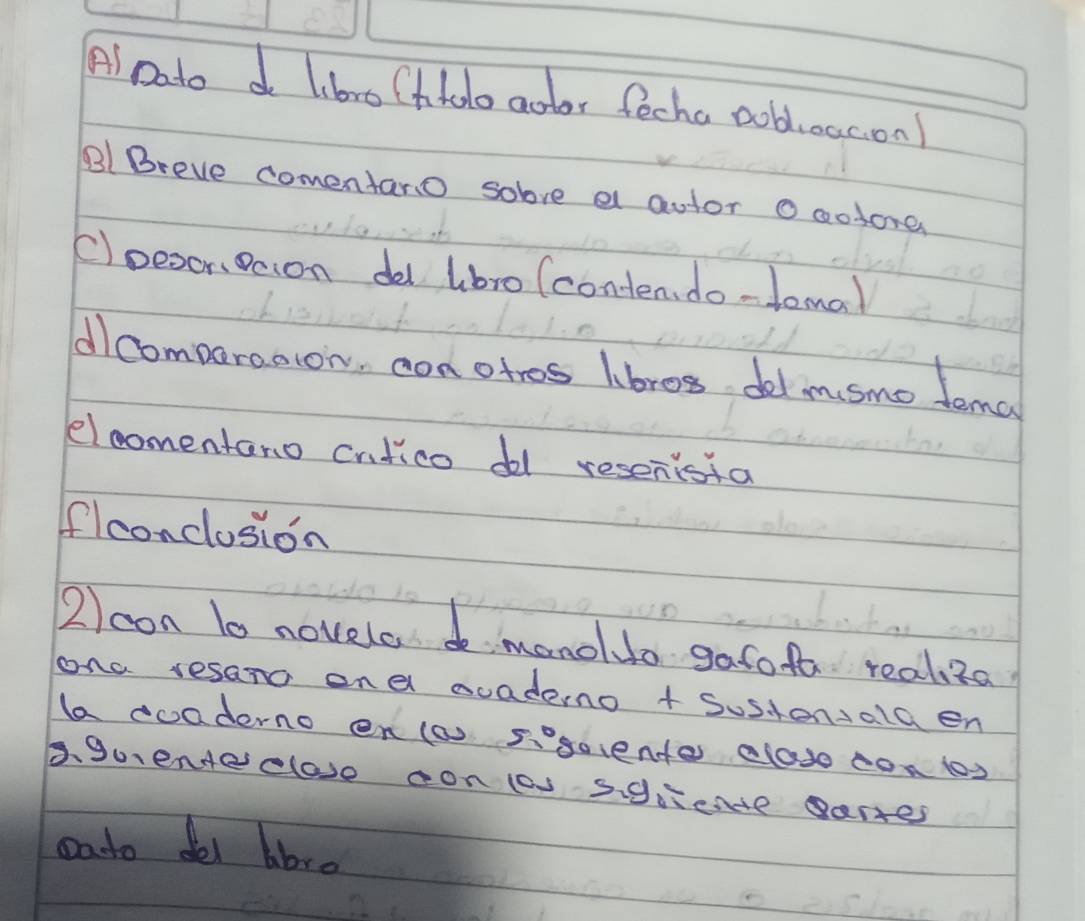 A) Dato de libro (titulo autor fecha poblicacion)
B) Breve comentario sobre el autor o autores
C) Descripcion del libro (contenido - tema)
d) Comparacion. con otros libros del mismo tema
e) comentario critico del reseñista
f) conclusión
2) con la novela de manolito gafota realiza
una resaña en el cuaderno + Sustentala en
la cuaderno en las siguiente clase con los
siguientes clase con las siguiente partes
Dato del libro